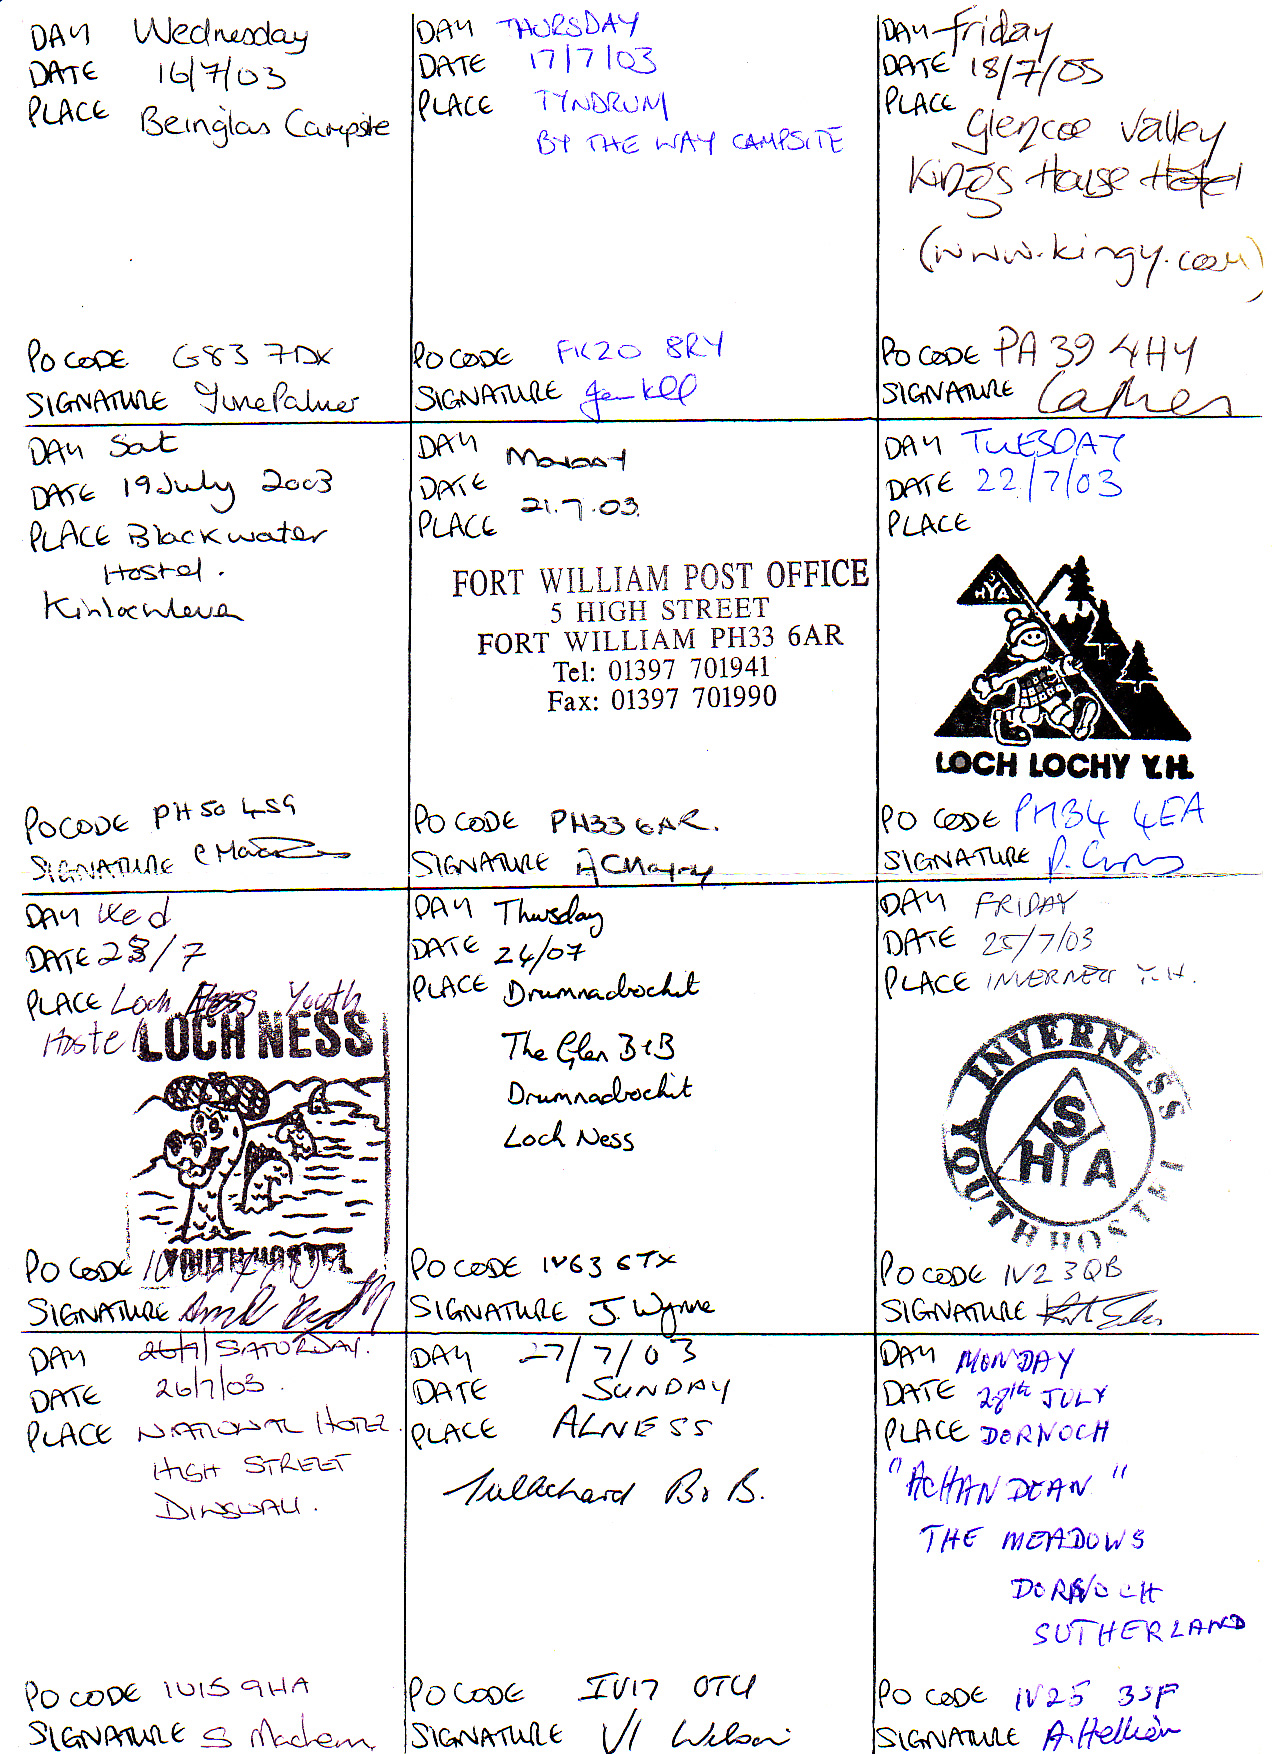 DAY Wednesday
DATE 16/7/03
PLACE Beinglas Campsite
PO CODE G83 7DX
SIGNATURE June Palmer
DAY THURSDAY
DATE 17/7/03
PLACE TYNDRUM
BY THE WAY CAMPSITE
PO CODE FK20 8RY
SIGNATURE
DAY Friday
DATE 18/7/03
PLACE
Glencoe Valley
Kings House Hotel
(www.kingy.com)
PO CODE PA39 4HY
SIGNATURE
DAY Sat
DATE 19 July 2003
PLACE Blackwater
Hostel.
Kinlochleven
PO CODE PH50 4SG
SIGNATURE
DAY Monday
DATE 21.7.03.
PLACE
FORT WILLIAM POST OFFICE
5 HIGH STREET
FORT WILLIAM PH33 6AR
Tel: 01397 701941
Fax: 01397 701990
PO CODE PH33 6AR.
SIGNATURE
DAY TUESDAY
DATE 22/7/03
PLACE
SYHA
LOCH LOCHY Y.H.
PO CODE PH34 4EA
SIGNATURE
DAY Wed
DATE 23/7
PLACE Loch Ness Youth
Hostel
LOCH NESS
YOUTH HOSTEL
PO CODE
SIGNATURE
DAY Thursday
DATE 24/07
PLACE Drumnadrochit
The Glen B&B
Drumnadrochit
Loch Ness
PO CODE IV63 6TX
SIGNATURE J. Wynne
DAY FRIDAY
DATE 25/7/03
PLACE INVERNESS Y.H.
INVERNESS YOUTH HOSTEL
SYHA
PO CODE IV2 3QB
SIGNATURE
DAY 26/7/ SATURDAY.
DATE 26/7/03.
PLACE NATIONAL HOTEL
HIGH STREET
DINGWALL.
PO CODE IV15 9HA
SIGNATURE S
DAY 27/7/03
DATE SUNDAY
PLACE ALNESS
Tullochard B&B.
PO CODE IV17 0TY
SIGNATURE Wilson
DAY MONDAY
DATE 28th JULY
PLACE DORNOCH
"ACHANDEAN"
THE MEADOWS
DORNOCH
SUTHERLAND
PO CODE IV25 3SF
SIGNATURE A.